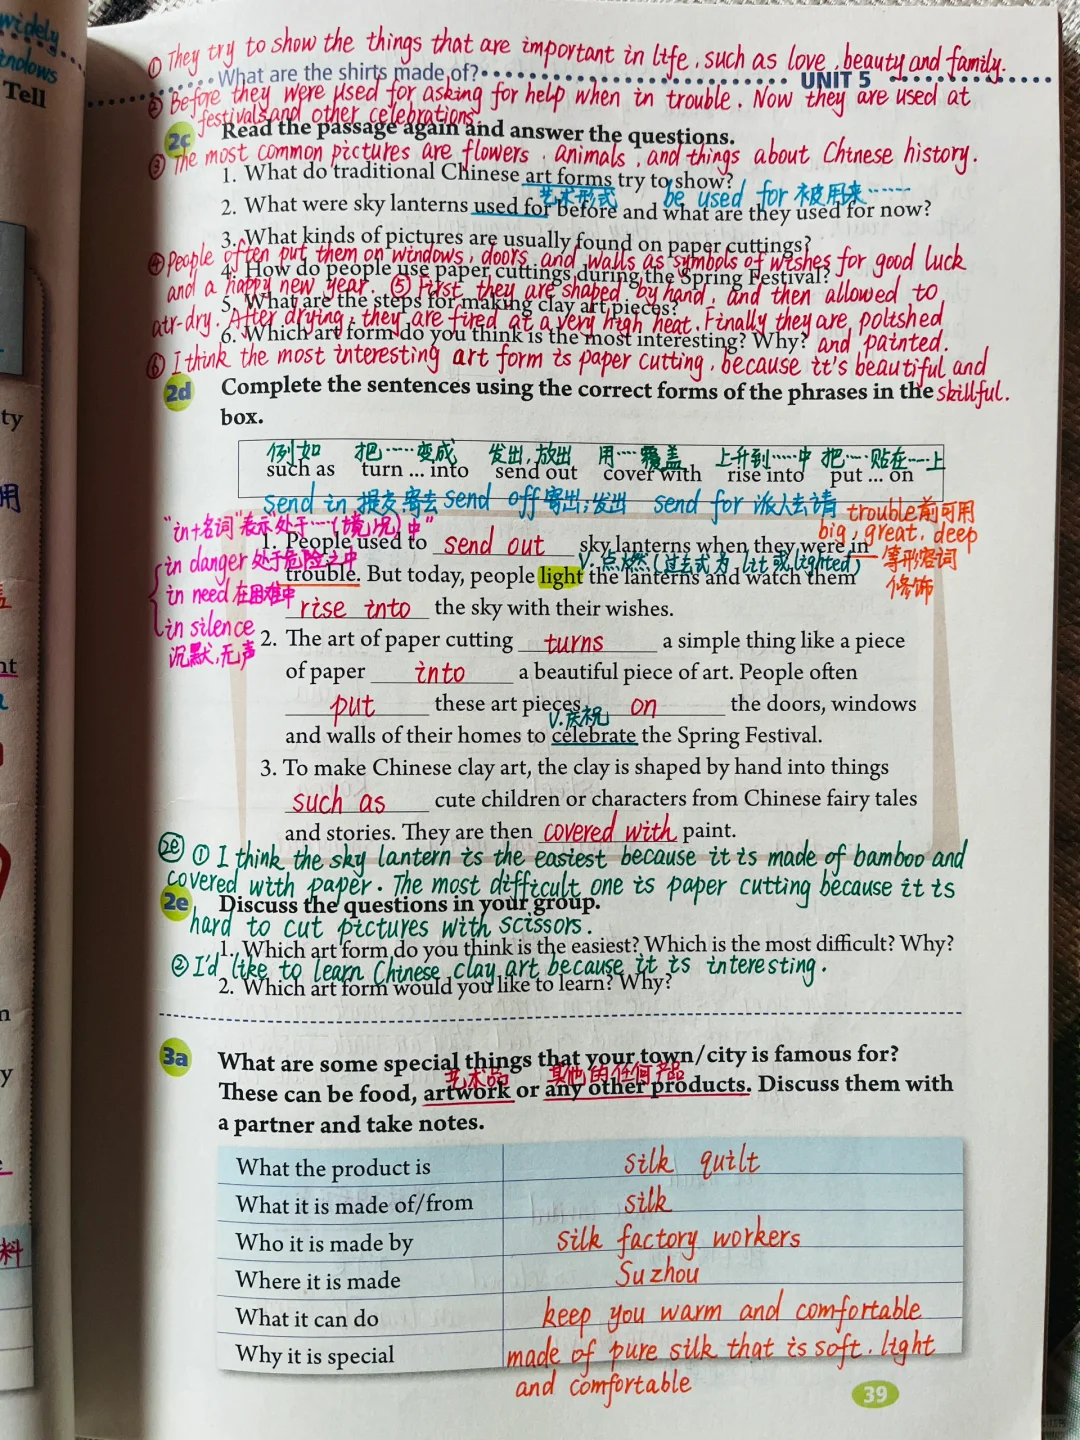 widely
windows
Tell
① They try to show the things that are important in life, such as love, beauty and family.
What are the shirts made of? UNIT 5
② Before they were used for asking for help when in trouble. Now they are used at
festivals and other celebrations.
2c Read the passage again and answer the questions.
③ The most common pictures are flowers, animals, and things about Chinese history.
1. What do traditional Chinese art forms try to show?
艺术形式 be used for 被用来……
2. What were sky lanterns used for before and what are they used for now?
3. What kinds of pictures are usually found on paper cuttings?
④ People often put them on windows, doors and walls as symbols of wishes for good luck
4. How do people use paper cuttings during the Spring Festival?
and a happy new year. ⑤ First, they are shaped by hand, and then allowed to
5. What are the steps for making clay art pieces?
air-dry. After drying, they are fired at a very high heat. Finally they are polished
6. Which art form do you think is the most interesting? Why? and painted.
⑥ I think the most interesting art form is paper cutting, because it's beautiful and
2d Complete the sentences using the correct forms of the phrases in the skillful.
box.
例如 把……变成 发出,放出 用…覆盖 上升到……中 把…贴在…上
such as turn ... into send out cover with rise into put ... on
send in 提交,寄去 send off 寄出;发出 send for 派人去请 trouble前可用
"in+名词"表示处于…(境,况)中" big, great, deep
1. People used to send out sky lanterns when they were in 等形容词
in danger 处于危险之中 v. 点燃(过去式为 lit 或 lighted)
trouble. But today, people light the lanterns and watch them 修饰
in need 在困难中 rise into the sky with their wishes.
in silence
沉默,无声
2. The art of paper cutting turns a simple thing like a piece
of paper into a beautiful piece of art. People often
put these art pieces on the doors, windows
v. 庆祝
and walls of their homes to celebrate the Spring Festival.
3. To make Chinese clay art, the clay is shaped by hand into things
such as cute children or characters from Chinese fairy tales
and stories. They are then covered with paint.
2e ① I think the sky lantern is the easiest because it is made of bamboo and
covered with paper. The most difficult one is paper cutting because it is
2e Discuss the questions in your group.
hard to cut pictures with scissors.
1. Which art form do you think is the easiest? Which is the most difficult? Why?
② I'd like to learn Chinese clay art because it is interesting.
2. Which art form would you like to learn? Why?
3a What are some special things that your town/city is famous for?
艺术品 其他的任何产品
These can be food, artwork or any other products. Discuss them with
a partner and take notes.
What the product is silk quilt
What it is made of/from silk
Who it is made by silk factory workers
Where it is made Suzhou
What it can do keep you warm and comfortable
Why it is special made of pure silk that is soft, light
and comfortable
39